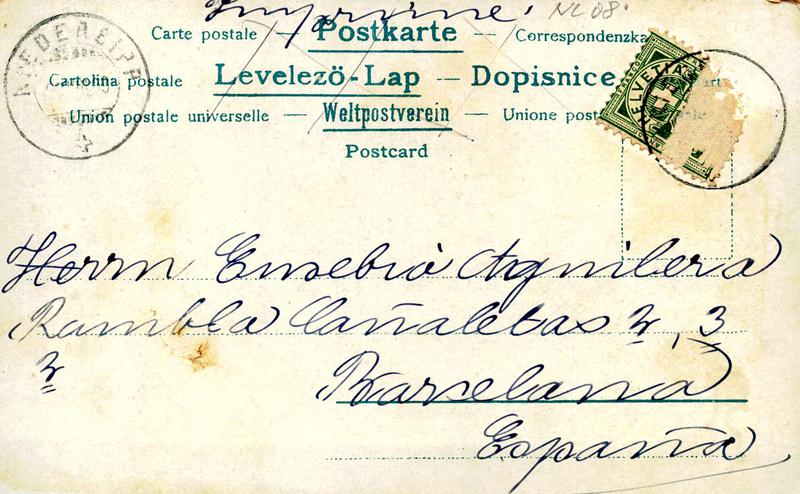 Imprimé.
NL 08
Carte postale — Postkarte — Correspondenzka
Cartolina postale Levelezö-Lap — Dopisnice
Union postale universelle — Weltpostverein — Unione post
Postcard
HELVETIA
Herrn Eusebio Aguilera
Rambla Cañaletas 2, 3
2
Barcelana
España